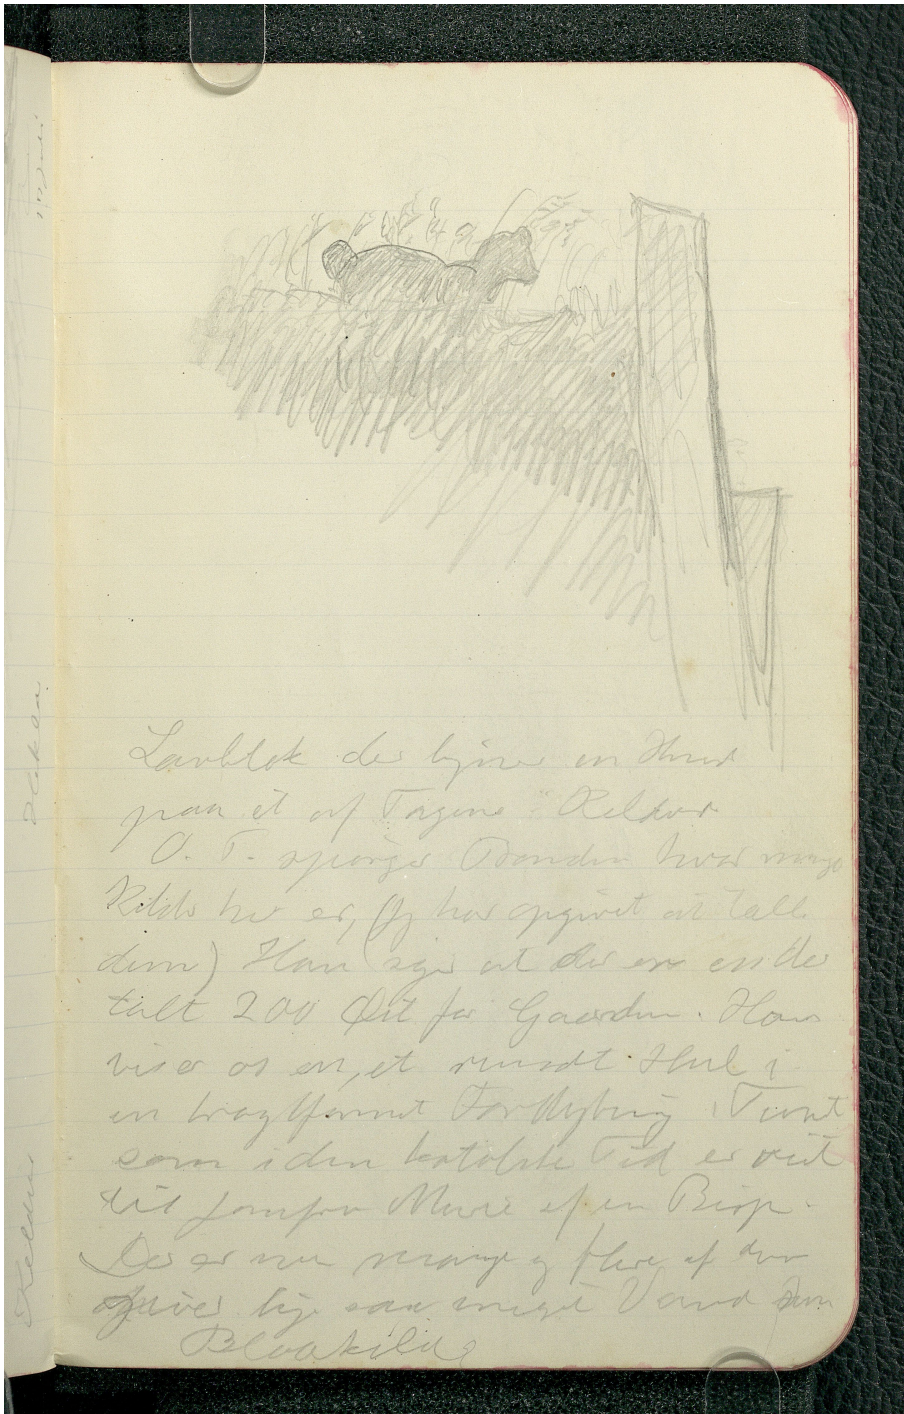 Lavblok der ligner en Hund
paa et af Tagene Keldur
O. T. spørger Bonden hvor mange
Kilder her er, (Jeg har opgivet at tælle
dem) Han siger at der er
talt 200 Øst for Gaarden. Han
viser os en, et rundt Hul i
en tragtformet Fordybning i Tunet
som i den katolske Tid er viet
til Jomfru Marie af en Bisp.
Der er nu mange og flere af dem
giver lige saa meget Vand som
Blaakilde
Hekla
Keldur